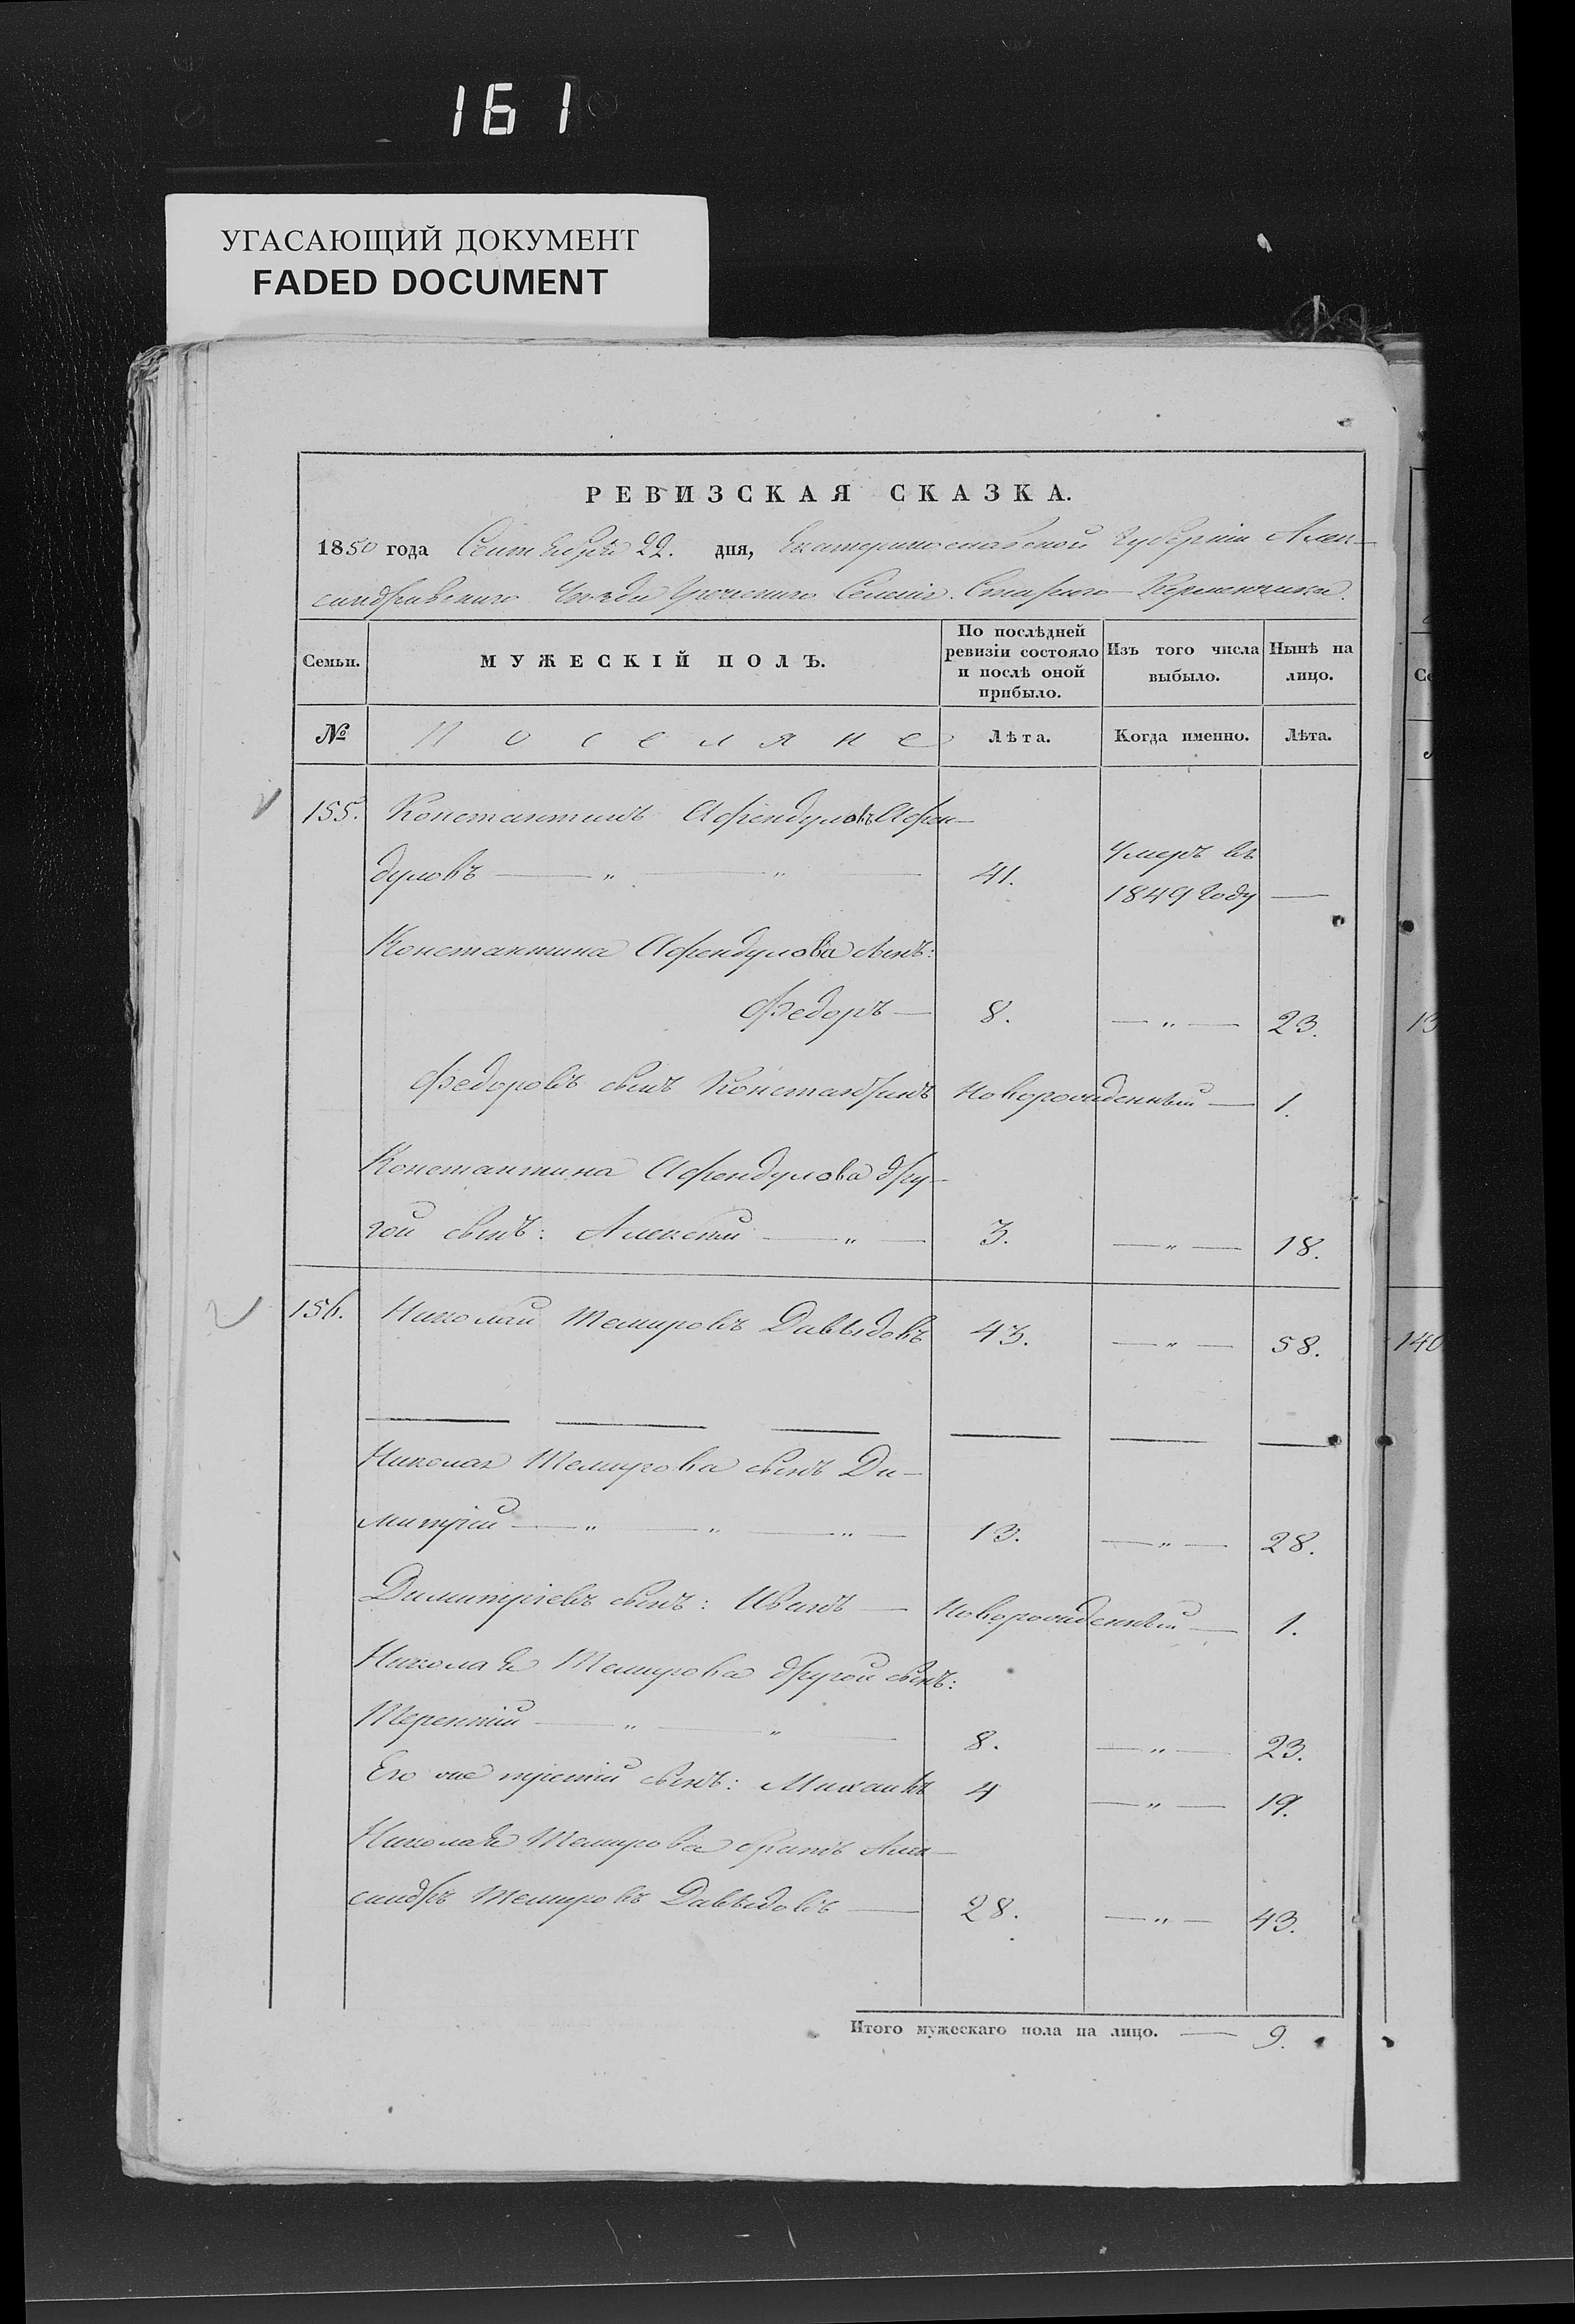 161
УГАСАЮЩИЙ ДОКУМЕНТ
FADED DOCUMENT
РЕВИЗСКАЯ СКАЗКА.
1850 года Сентября 22. дня, Екатеринославской Губерніи Алек-
сандравскаго Уезда Греческаго Селенія Стараго-Керменчика.
Семьи.
МУЖЕСКІЙ ПОЛЪ.
По послѣдней ревизіи состояло и послѣ оной прибыло.
Изъ того числа выбыло.
Нынѣ на лицо.
№ Поселяне Лѣта. Когда именно. Лѣта.
155. Константинъ Афендуловъ Афен-
дуловъ — " — " — 41. Умеръ въ 1849 Году —
Константина Афендулова сынъ:
Федоръ — 8. — " — 23.
Федоровъ сынъ Констан�тинъ Новорожденный — 1.
Константина Афендулова дру-
гой сынъ: Алексѣй — " — 3. — " — 18.
156. Николай Темировъ Давыдовъ 43. — " — 58.
Николая Темирова сынъ Ди-
митрій — " — " — " — 13. — " — 28.
Димитріевъ сынъ: Иванъ — Новорожденный — 1.
Николая Темирова другой сынъ:
Терентий — " — " — 8. — " — 23.
Его же третій сынъ: Михаилъ 4 — " — 19.
Николая Темирова братъ Алек-
сандръ Темировъ Давыдовъ — 28. — " — 43.
Итого мужескаго пола на лицо. — 9.
13
140